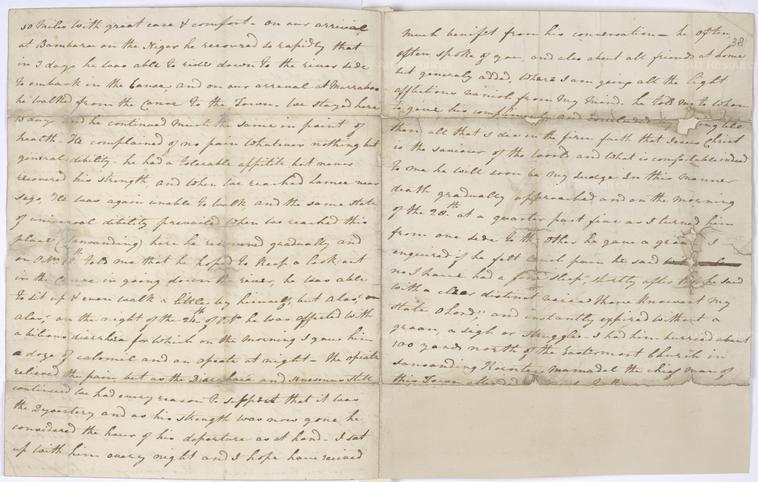 50 Miles with great care & comfort – on our arrival
at Bambara on the Niger he recovered so rapidly that
in 3 days he was able to ride down to the river side
to embark in the Canoe, and on our arrival at Marraboo
he walked from the Canoe to the Town – we stayed here
and he continued much the same in point of
health. He complained of no pain whatever nothing but
general debility – he had a tolerable appetite but never
recovered his strength and when we reached Samee near
Sego, He was again unable to walk and the same state
of universal debility prevailed when we reached this
place (Sansanding) here he recovered gradually and
on told me that he hoped to keep a look out
in the Canoe in going down the river, he was able
to sit up & even walk a little by himself, but Alas!
alas, on the night of the 24th of he was affected with
a bilious diarrhea for which on the morning I gave him
a doge of calomel and an opeate at night – the opeate
releived the pain but as the Diarrhea and still
continued we had every reason to suspect that it was
the Dysentery and as his strength was now gone he
considered the hour of his departure as at hand – I sat
up with him every night and I hope have received
38
much benefit from his conversation – he often
often spoke of you, and also about all friends at home
but generally added, Where I am going all the light
afflictions vanish from my mind. he told me to whom
to give his and
them all that I die in the firm faith that Jesus Christ
is the saviour of the world and what is comfortable indeed
to me he will soon be my Judge In this manner
death gradually approached and on the morning
of the 28th at a quarter past five as I turned him
from one side to the other he gave a I
enquired if he felt much pain he said
no I have had a fine sleep, shortly after he said
with a clear distinct voice "thou knowest my
state o Lord" and instantly expired without a
groan, a sigh or struggle. I had him burried about
100 yards north of the Eastermost Church in
Sansanding Mamadee the chief man of
this Town